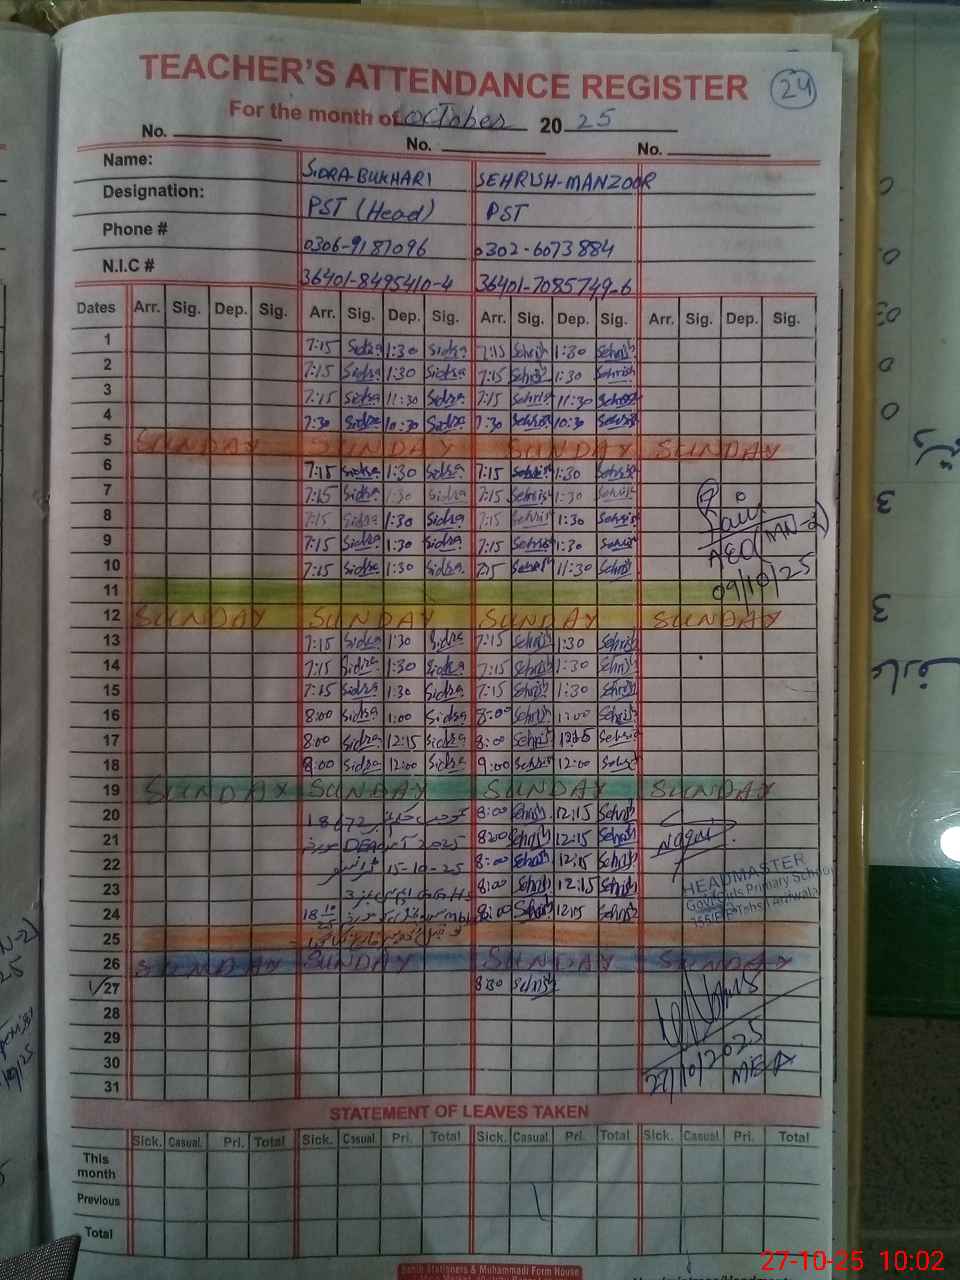 TEACHER'S ATTENDANCE REGISTER 24
For the month of October 2025
No. No. No.
Name: SIDRA-BUKHARI SEHRISH-MANZOOR
Designation: PST (Head) PST
Phone # 0306-9187096 0302-6073884
N.I.C # 36401-8495410-4 36401-7085749-6
Dates Arr. Sig. Dep. Sig. Arr. Sig. Dep. Sig. Arr. Sig. Dep. Sig. Arr. Sig. Dep. Sig.
1 7:15 Sidra 1:30 Sidra 7:15 Sehrish 1:30 Sehrish
2 7:15 Sidra 1:30 Sidra 7:15 Sehrish 1:30 Sehrish
3 7:15 Sidra 11:30 Sidra 7:15 Sehrish 11:30 Sehrish
4 7:30 Sidra 10:30 Sidra 7:30 Sehrish 10:30 Sehrish
5 SUNDAY SUNDAY SUNDAY SUNDAY
6 7:15 Sidra 1:30 Sidra 7:15 Sehrish 1:30 Sehrish
7 7:15 Sidra 1:30 Sidra 7:15 Sehrish 1:30 Sehrish
8 7:15 Sidra 1:30 Sidra 7:15 Sehrish 1:30 Sehrish
9 7:15 Sidra 1:30 Sidra 7:15 Sehrish 1:30 Sehrish
10 7:15 Sidra 1:30 Sidra 7:15 Sehrish 11:30 Sehrish
AEO(MN-2)
09/10/25
11
12 SUNDAY SUNDAY SUNDAY SUNDAY
13 7:15 Sidra 1:30 Sidra 7:15 Sehrish 1:30 Sehrish
14 7:15 Sidra 1:30 Sidra 7:15 Sehrish 1:30 Sehrish
15 7:15 Sidra 1:30 Sidra 7:15 Sehrish 1:30 Sehrish
16 8:00 Sidra 1:00 Sidra 8:00 Sehrish 1:00 Sehrish
17 8:00 Sidra 12:15 Sidra 8:00 Sehrish 12:15 Sehrish
18 8:00 Sidra 12:00 Sidra 9:00 Sehrish 12:00 Sehrish
19 SUNDAY SUNDAY SUNDAY SUNDAY
20 18672 8:00 Sehrish 12:15 Sehrish
21 DEA 2025 8:00 Sehrish 12:15 Sehrish
22 15-10-25 8:00 Sehrish 12:15 Sehrish
23 8:00 Sehrish 12:15 Sehrish
24 8:00 Sehrish 12:15 Sehrish
HEADMASTER
Govt Girls Primary School
25
26 SUNDAY SUNDAY SUNDAY SUNDAY
1/27 8:30 Sehrish
28
29
30
31
27/10/2025
MEA
STATEMENT OF LEAVES TAKEN
Sick. Casual. Pri. Total Sick. Casual. Pri. Total Sick. Casual. Pri. Total Sick. Casual. Pri. Total
This month
Previous
Total
Stationers & Muhammadi Form House
27-10-25 10:02